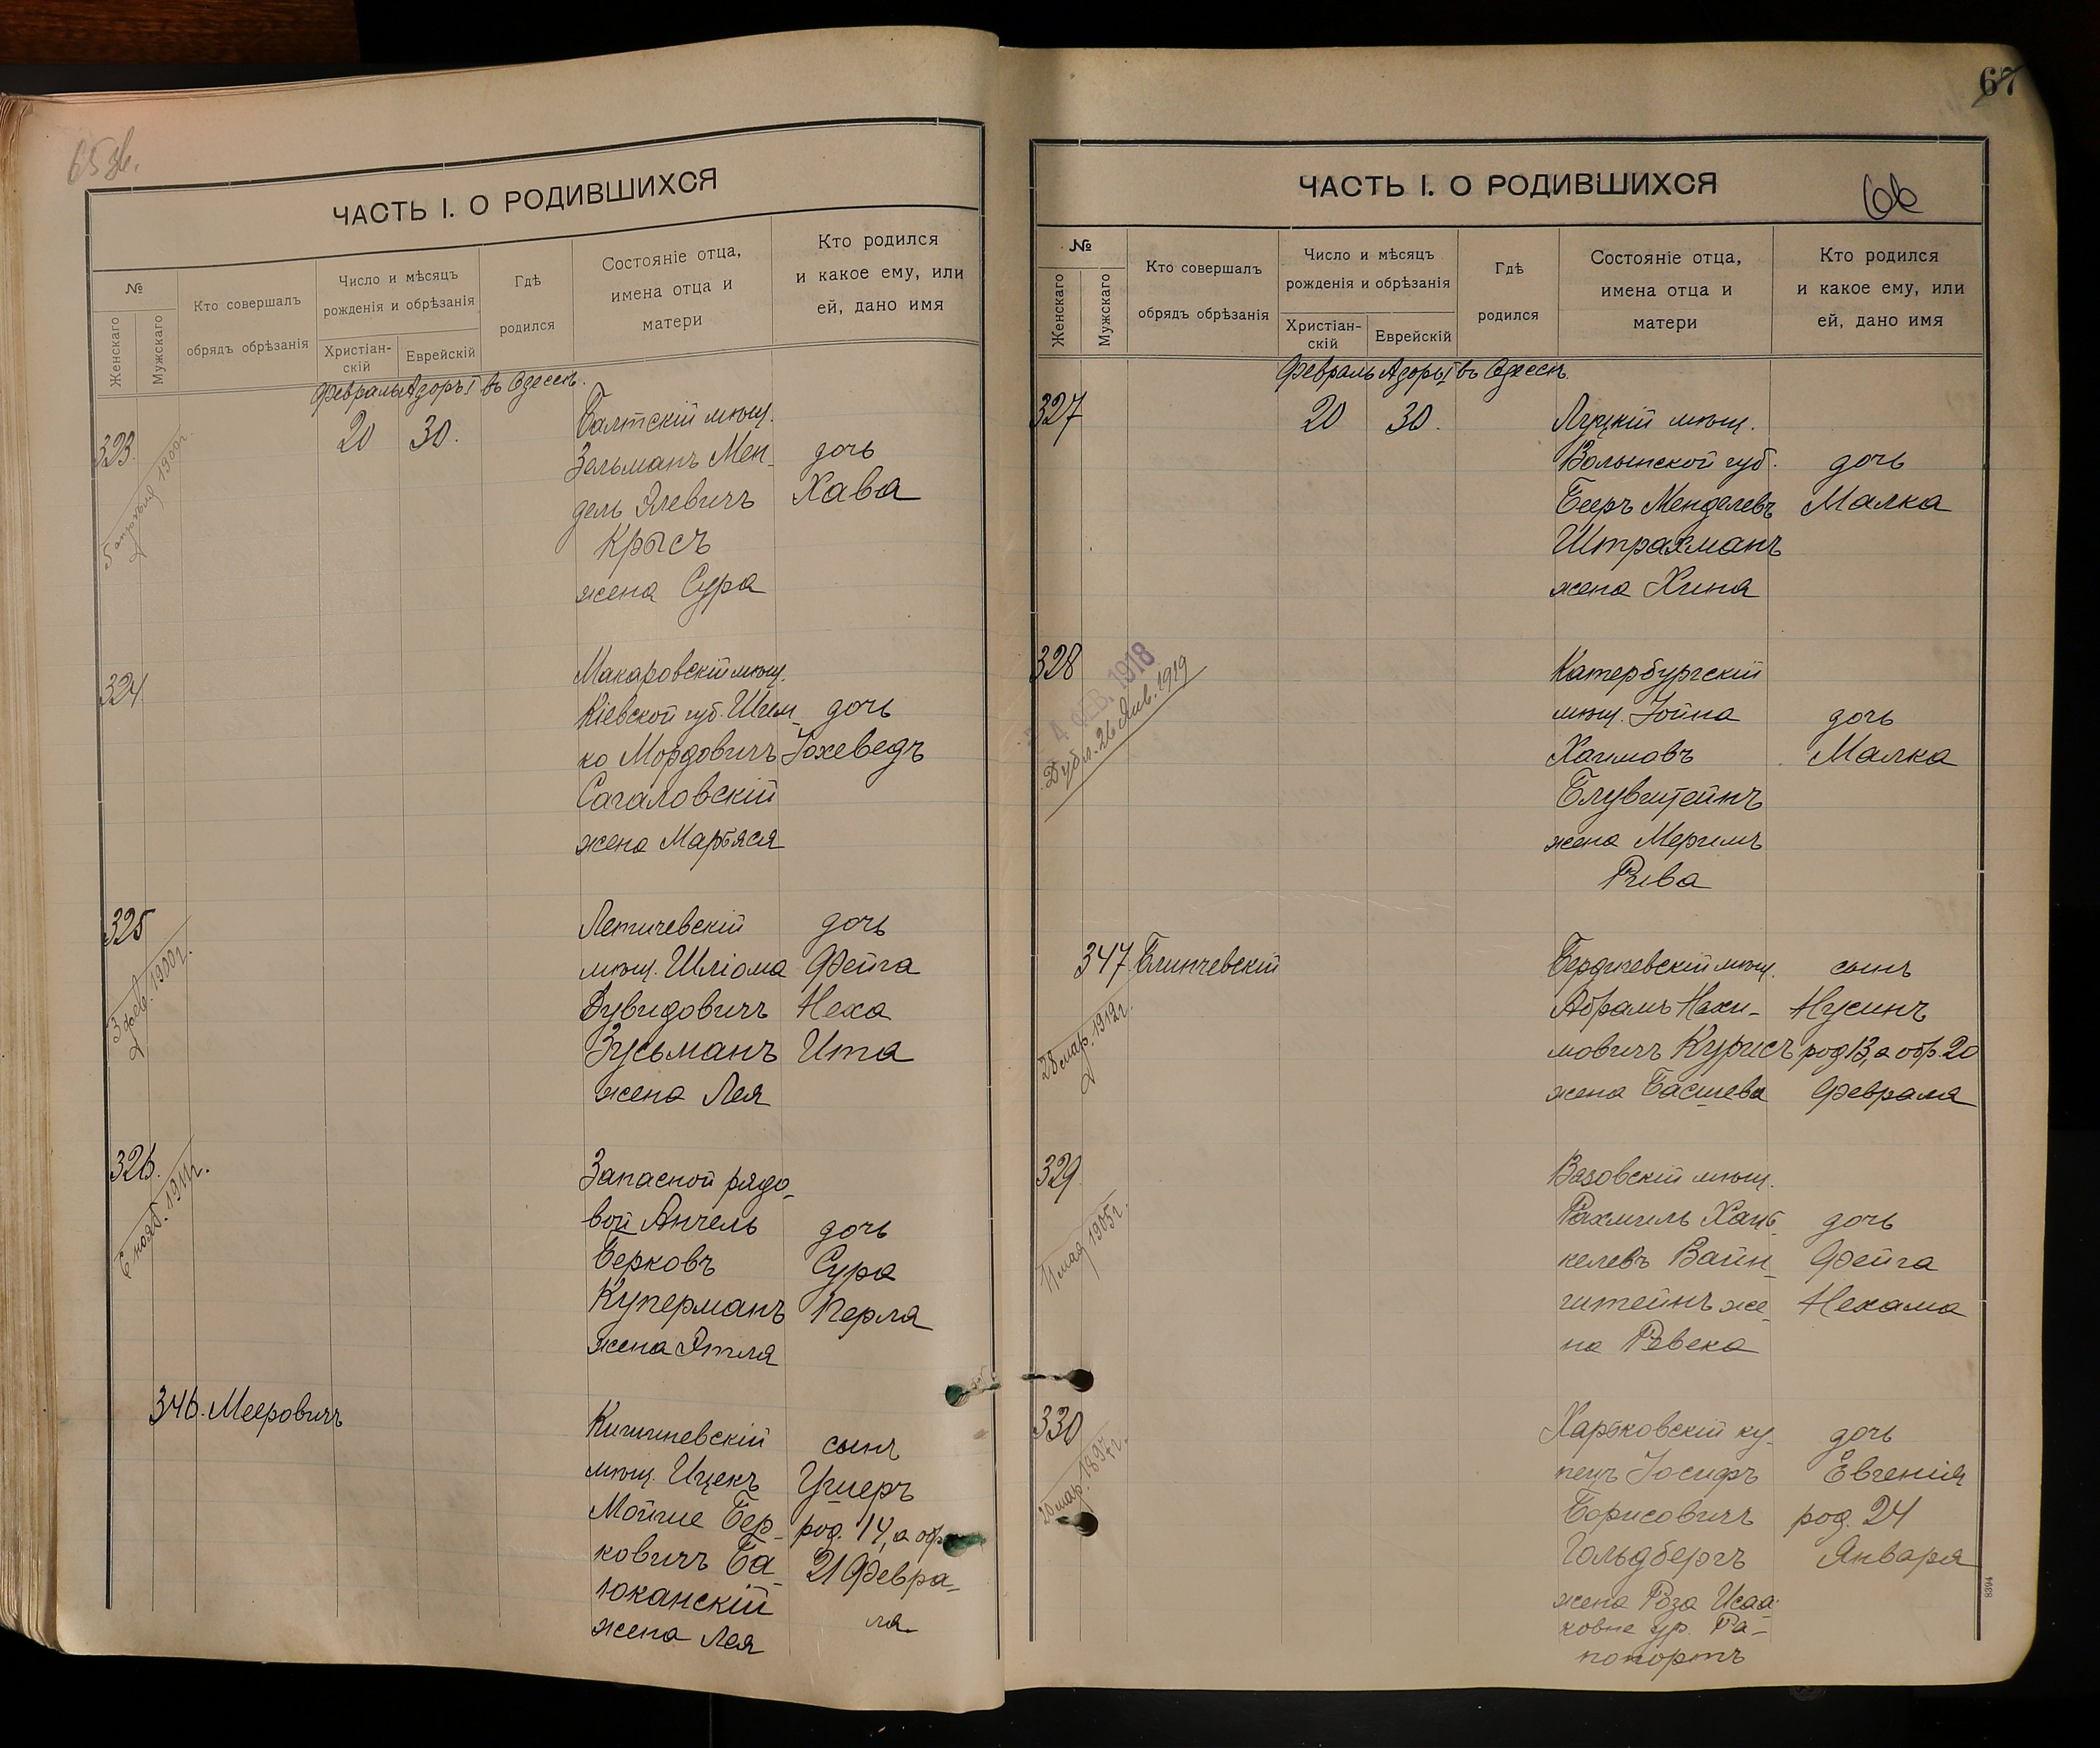 65 об.
ЧАСТЬ I. О РОДИВШИХСЯ
№
Женскаго
Мужскаго
Кто совершалъ
обрядъ обрѣзанія
Число и мѣсяцъ
рожденія и обрѣзанія
Христіан-
скій
Еврейскій
Гдѣ
родился
Состояніе отца,
имена отца и
матери
Кто родился
и какое ему, или
ей, дано имя
Февраль Адоръ I въ Одессѣ.
323
5 апрѣля 1900г.
20 30.
Балтскій мѣщ.
Зельманъ Мен-
дель Элевичъ
Крысъ
жена Сура
дочь
Хава
324
Макаровскій мѣщ.
Кіевской губ. Шлем-
ко Мордовичъ
Сагаловскій
жена Марьяся
дочь
Іохеведъ
325
3 фев. 1900г.
Летичевскій
мѣщ. Шліома
Дувидовичъ
Зусьманъ
жена Лея
дочь
Фейга
Неха
Ита
326.
6 нояб. 1911г.
Запасной рядо-
вой Анчель
Берковъ
Куперманъ
жена Этля
дочь
Сура
Перля
346. Мееровичъ
Кишиневскій
мѣщ. Ицекъ
Мойше Бер-
ковичъ Ба-
юканскій
жена Лея
сынъ
Ушеръ
род. 14, а обр.
21 Февра-
ля
67
66
ЧАСТЬ I. О РОДИВШИХСЯ
№
Женскаго
Мужскаго
Кто совершалъ
обрядъ обрѣзанія
Число и мѣсяцъ
рожденія и обрѣзанія
Христіан-
скій
Еврейскій
Гдѣ
родился
Состояніе отца,
имена отца и
матери
Кто родился
и какое ему, или
ей, дано имя
Февраль Адоръ I въ Одессѣ.
327
20 30.
Луцкій мѣщ.
Волынской губ.
Бееръ Менделевъ
Штрахманъ
жена Хина
дочь
Малка
328
4 ФЕВ. 1918
Дубл. 26 Янв. 1919
Катербургскій
мѣщ. Іойна
Хаимовъ
Блувштейнъ
жена Меримъ
Рива
дочь
Малка
347. Блинчевскій
28 мар. 1912г.
Бердичевскій мѣщ.
Абрамъ Нахи-
мовичъ Курисъ
жена Басшева
сынъ
Нусинъ
род 13, а обр. 20
Февраля
329
11 мая 1905г.
Вазовскій мѣщ.
Рахмиль Хаць-
келевъ Вайн-
штейнъ же-
на Ревека
дочь
Фейга
Нехама
330
20 мар. 1897г.
Харьковскій ку-
пецъ Іосифъ
Борисовичъ
Гольдбергъ
жена Роза Исаа-
ковна ур. Ра-
попортъ
дочь
Евгенія
род. 24
Января
8394